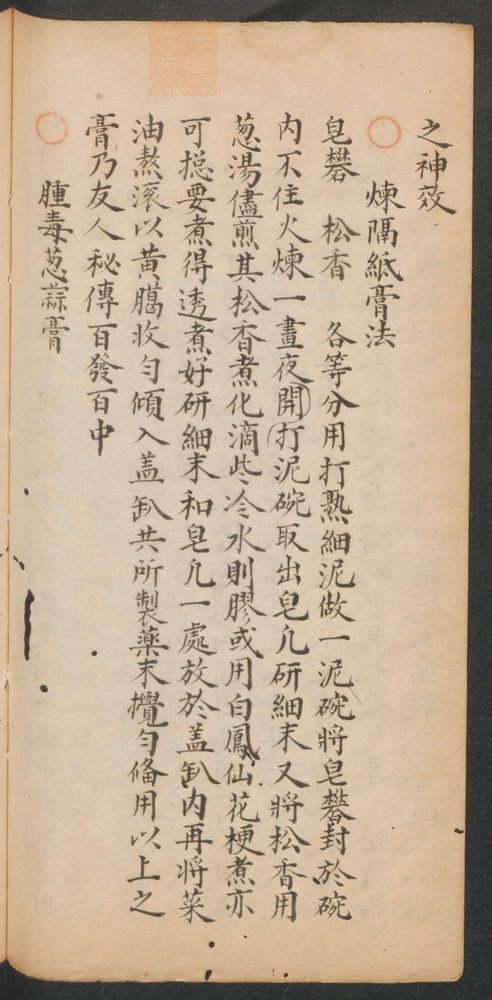 之神效
煉隔紙膏法
皂礬　松香　各等分用打熟細泥做一泥碗將皂礬封於碗
内不住火煉一晝夜開打泥碗取出皂凢研細末又將松香用
葱湯儘煎其松香煮化滴些冷水則膠或用白鳳仙花梗煮亦
可捴要煮得透煮好研細末和皂凢一處放於盖缷内再將菜
油熬滚以黄臈收匀傾入盖缷共所製藥末攪匀偹用以上之
膏乃友人秘傳百發百中
腫毒葱蒜膏